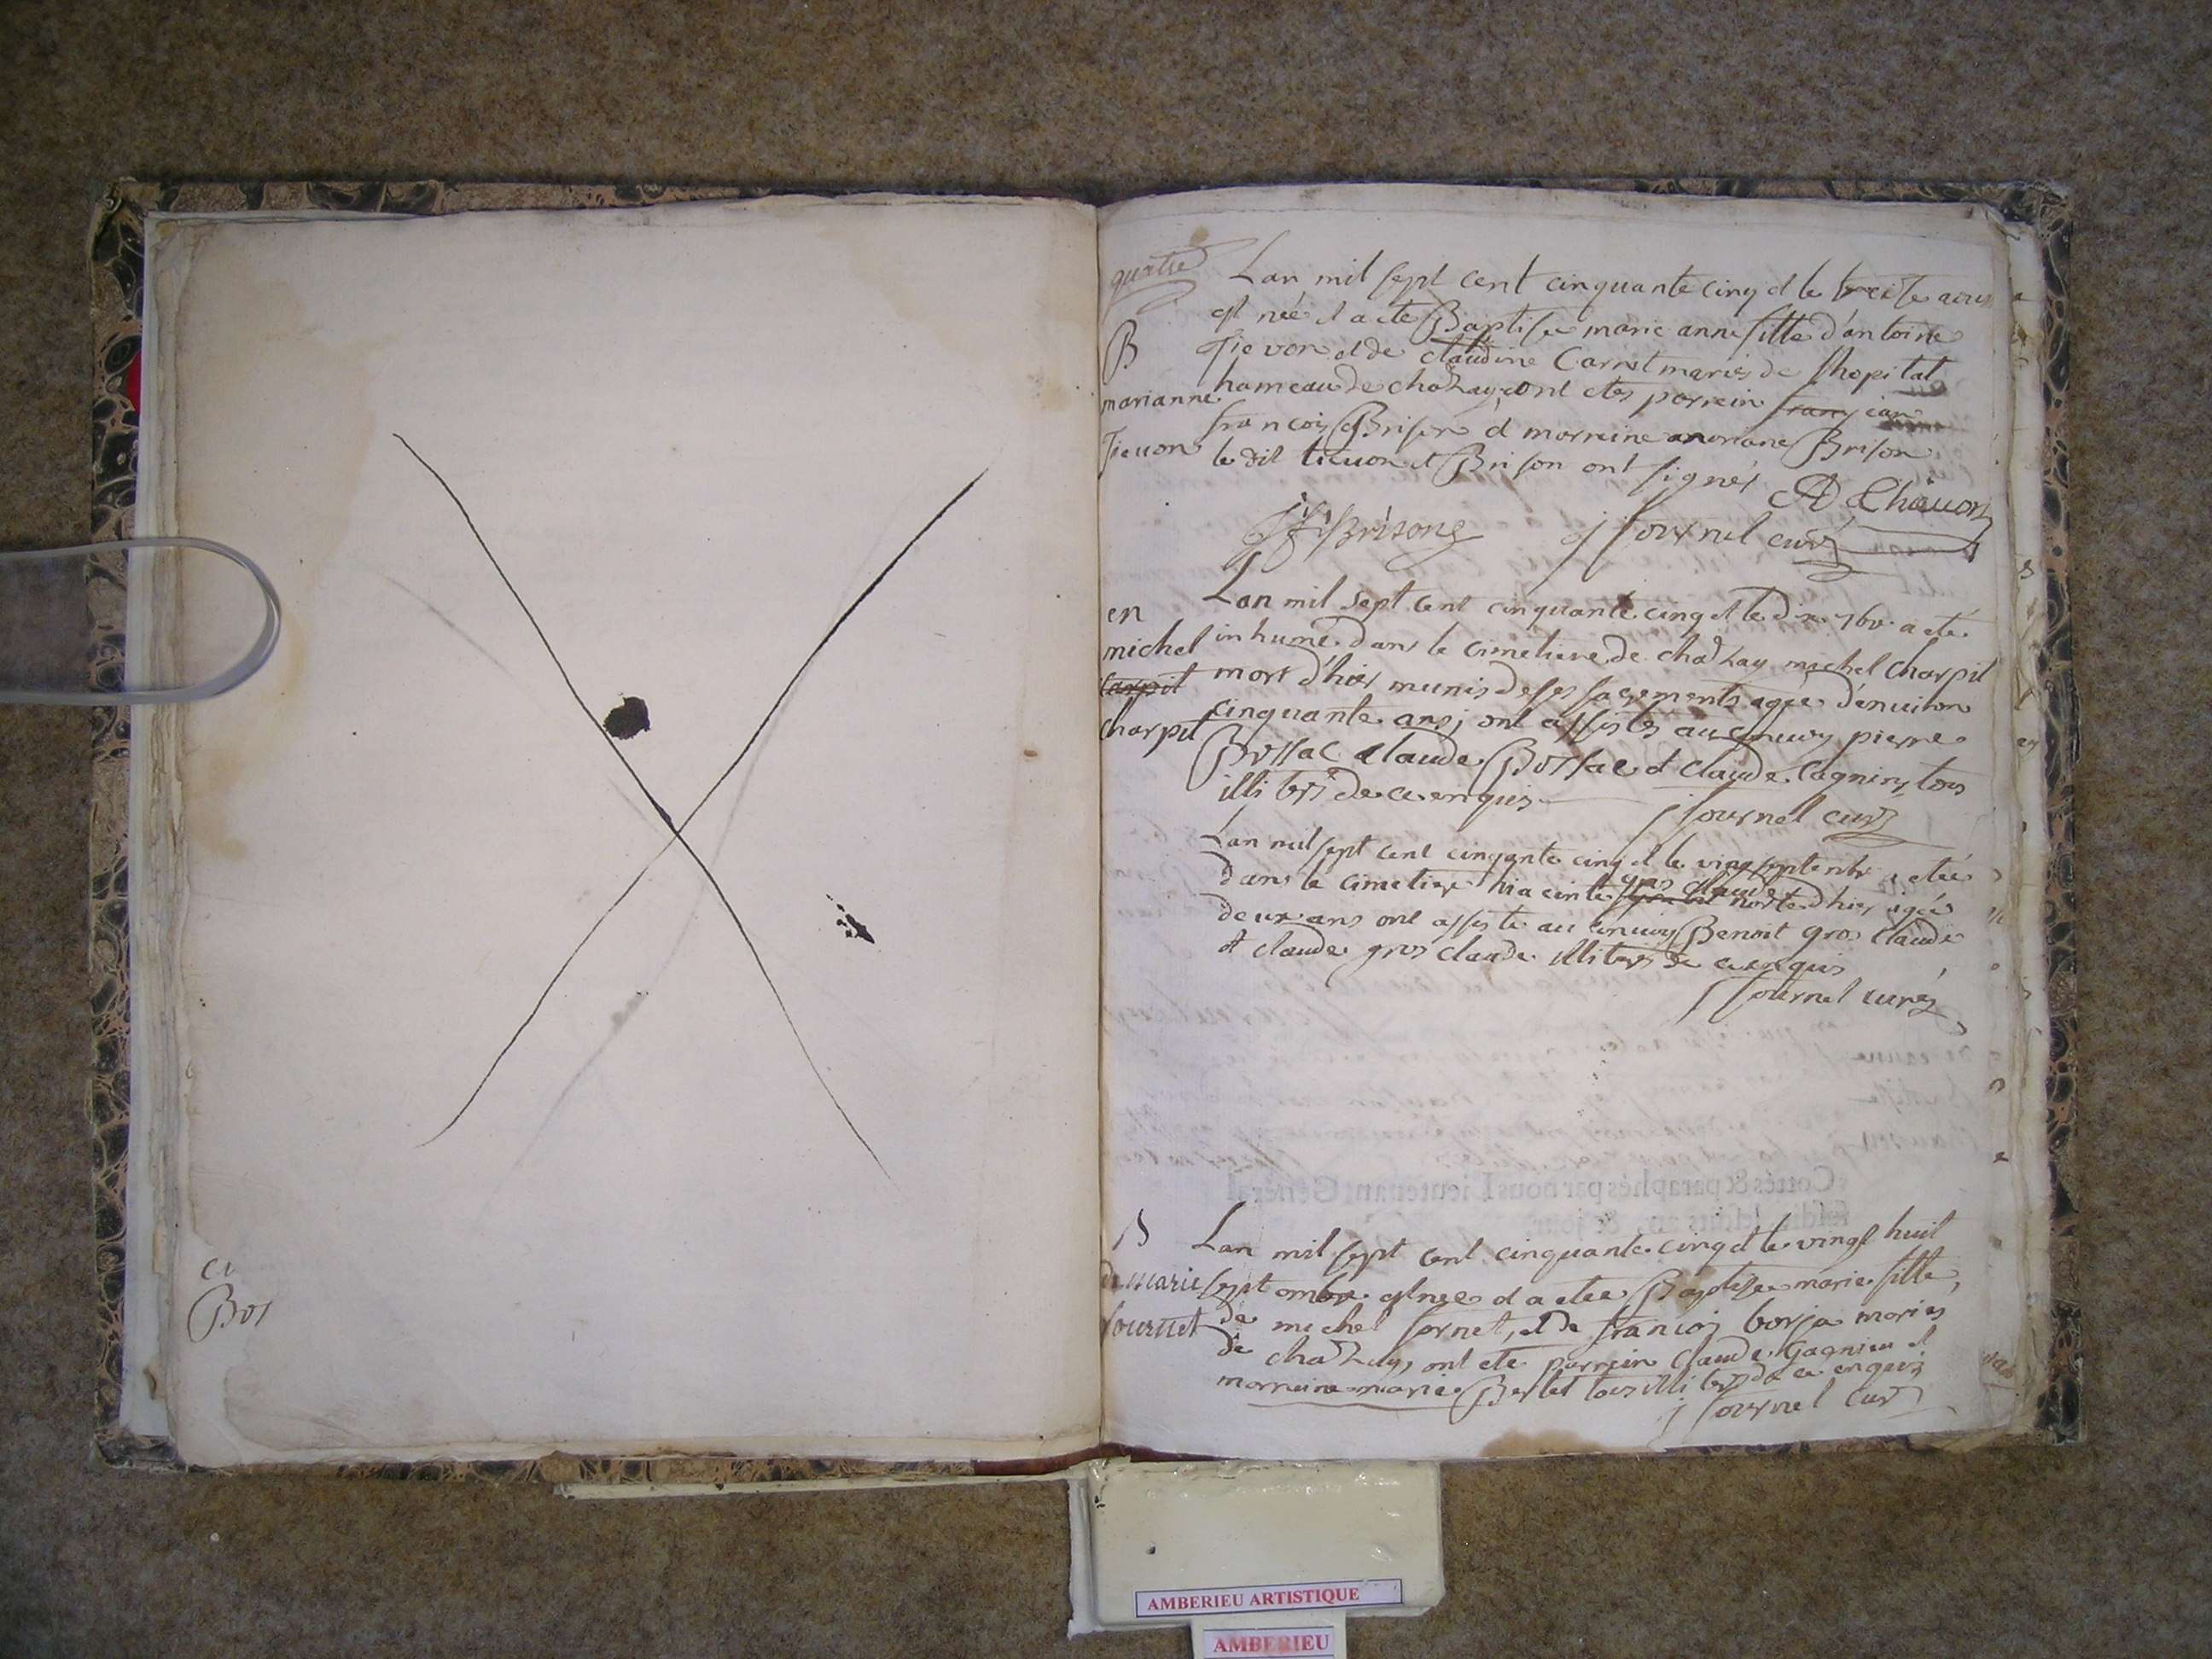 ci
Bos
quatre
Lan mil sept cent cinquante cinq et le treise aous
est née et a ete Baptisee marie anne fille d'antoine
B
Tievon et de claudine Carret mariés de l'hopital
marianne
hameau de chazay, ont etes parrein
Tieuon
francois Brison et marreine anoriane Brison
le dit tieuon et Brison ont signés
A Chäuon
Brisong
j fournel curé
Lan mil sept cent cinquante cinq et le dix 7bre a eté
en
michel
inhumé dans le cimetiere de chazay michel Charpit
carpit
mort d'hier munis de ses sacrements agée d'enuiron
charpit
cinquante ans; ont assistés au conuoy pierre
Bossac claude Bossac et claude Cagnin, tous
illiterés de ce enquis
j fournel curé
Lan mil sept cent cinqante cinq et le ving septembre a etée
gros claude
dans le cimetiere hiacinte morte d'hier agée
deux ans ont assiste au conuoy Benoit gros claude
et claude gros claude illiterés de ce enquis
j fournel curé
Cottés & paraphés par nous Lieutenant General
B
Lan mil sept cent cinquante cinq et le vingt huit
de marie
septembre est nee et a etee Baptisee marie fille
fournet
de michel fornet, et de francois borja mariés
de chazay, ont ete parrein claude Gagnieu et
marreine marie Berlet tous illiterés de ce enquis
j fournel curé
AMBERIEU ARTISTIQUE
AMBERIEU